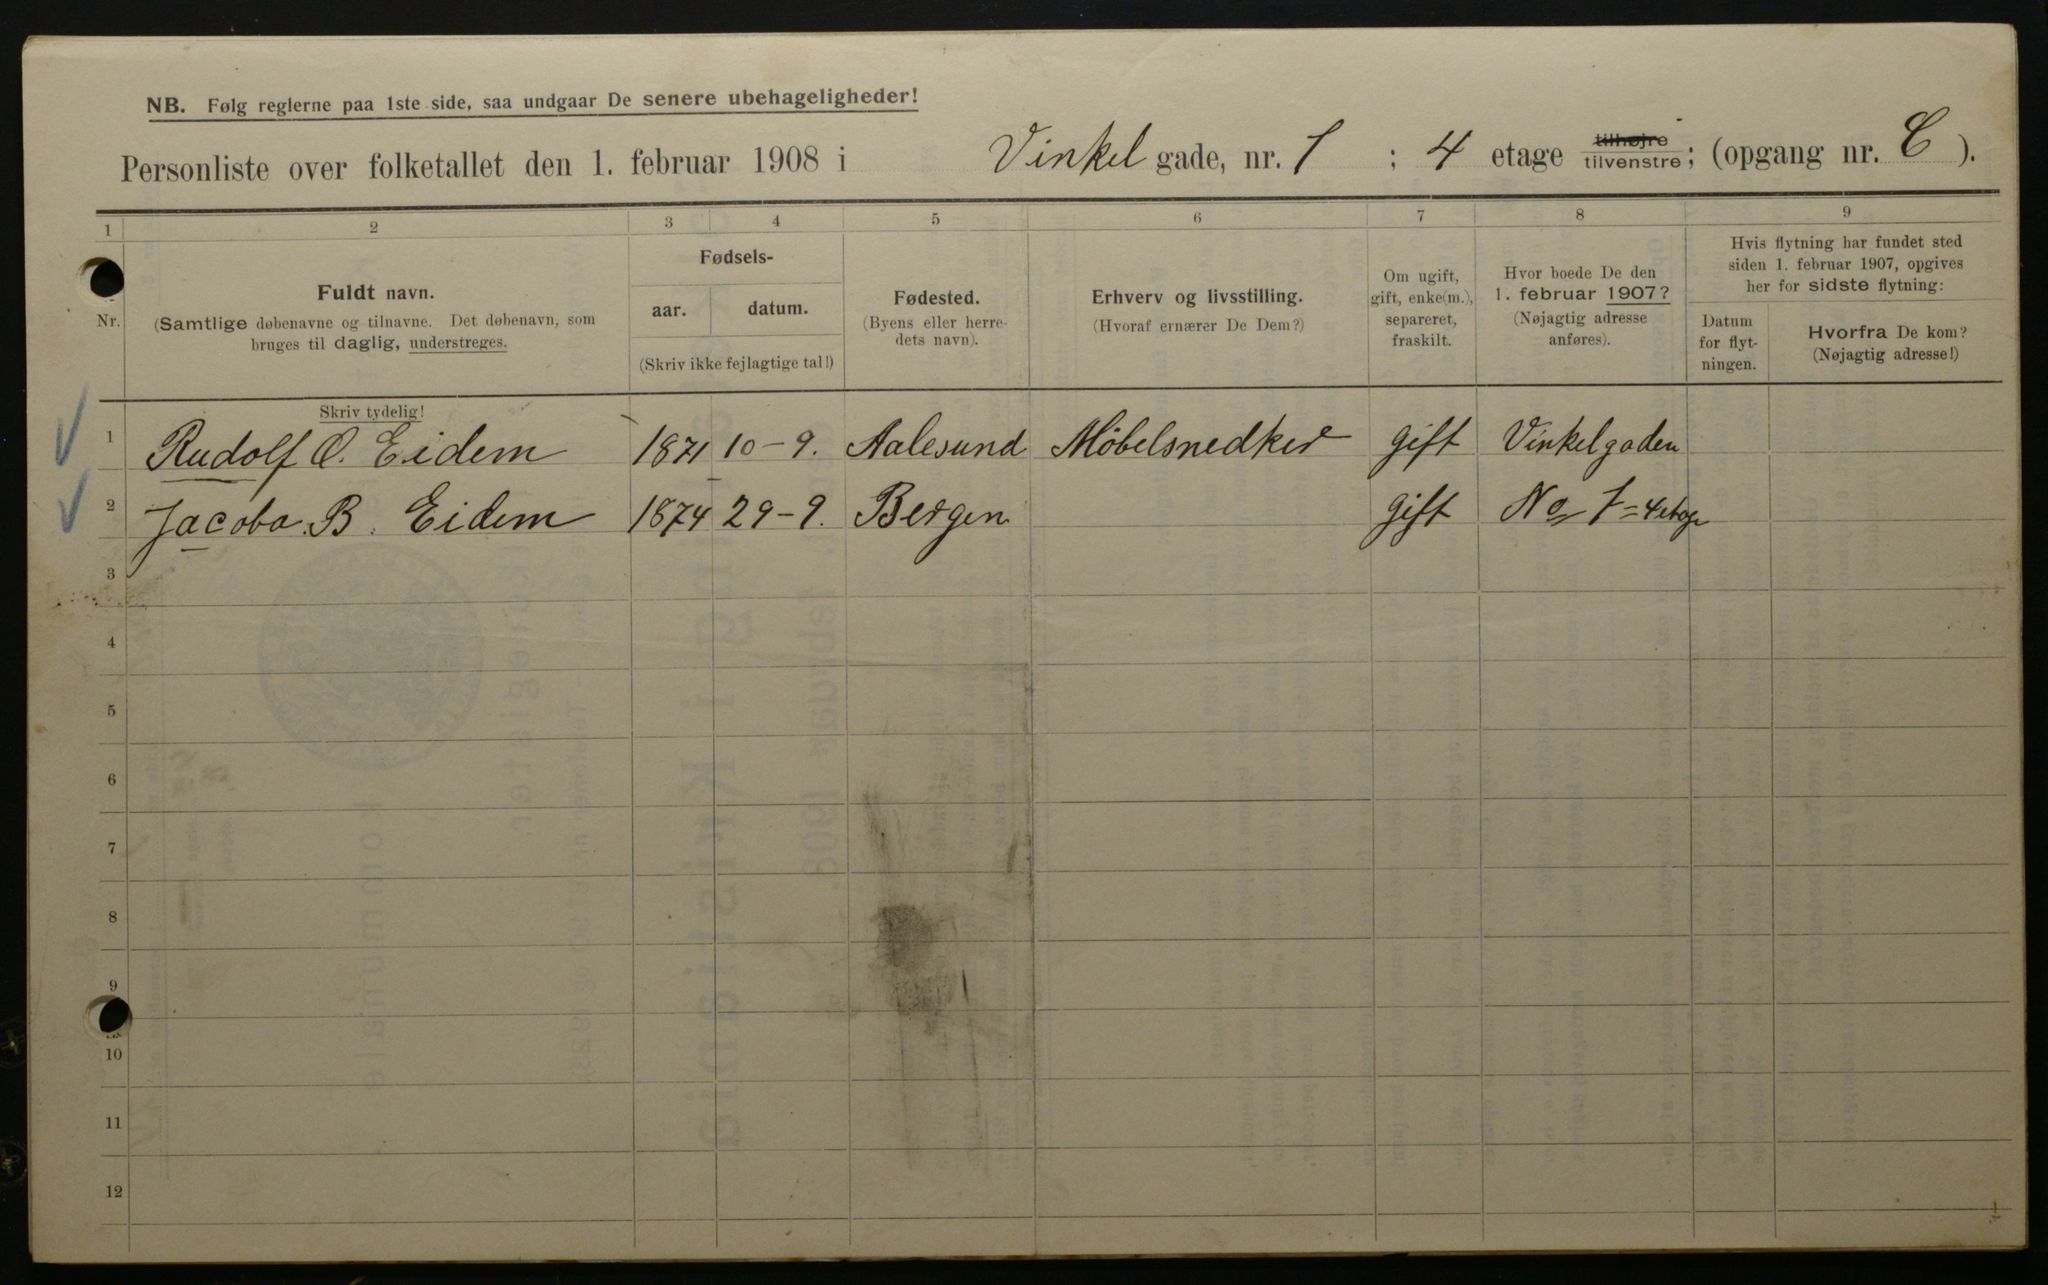 NB. Følg reglerne paa 1ste side, saa undgaar De senere ubehageligheder!
Personliste over folketallet den 1. februar 1908 i Vinkel gade, nr. 1 ; 4 etage tilhøjre tilvenstre; (opgang nr. C ).
1 2 3 4 5 6 7 8 9
Nr.
Fuldt navn.
(Samtlige døbenavne og tilnavne. Det døbenavn, som
bruges til daglig, understreges.
Fødsels-
aar. datum.
(Skriv ikke fejlagtige tal!)
Fødested.
(Byens eller herre-
dets navn).
Erhverv og livsstilling.
(Hvoraf ernærer De Dem?)
Om ugift,
gift, enke(m.),
separeret,
fraskilt.
Hvor boede De den
1. februar 1907?
(Nøjagtig adresse
anføres).
Hvis flytning har fundet sted
siden 1. februar 1907, opgives
her for sidste flytning:
Datum
for flyt-
ningen.
Hvorfra De kom?
(Nøjagtig adresse!)
Skriv tydelig!
1 Rudolf O. Eidem 1871 10-9. Aalesund Møbelsnedker gift Vinkelgaden
2 Jacoba B. Eidem 1874 29-9. Bergen gift No 1 = 4 etage
3
4
5
6
7
8
9
10
11
12